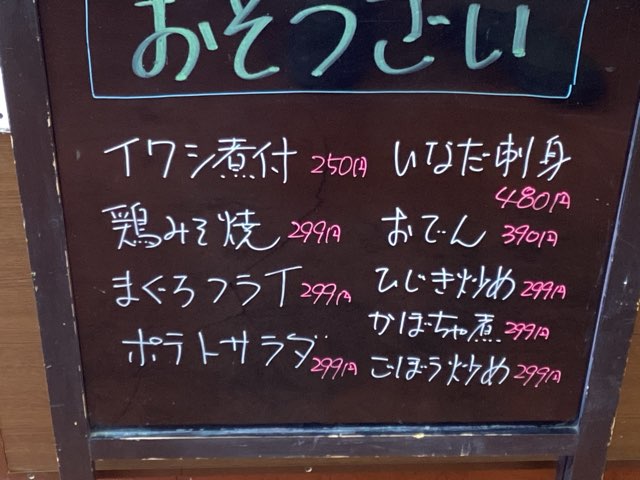 おそうざい
イワシ煮付 250円
鶏みそ焼 299円
まぐろフライ 299円
ポテトサラダ 299円
いなだ刺身
480円
おでん 390円
ひじき炒め 299円
かぼちゃ煮 299円
ごぼう炒め 299円